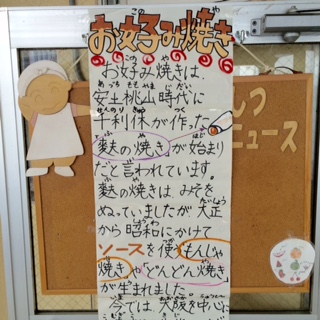 お好み焼き
お好み焼きは、
安土桃山時代に
千利休が作った
「麩の焼き」が始まり
だと言われています。
麩の焼きは、みそを
ぬっていましたが、大正
から昭和にかけて
ソースを使うもんじゃ
焼きや「どんどん焼き」
が生まれました。
今では、大阪を中心に
しつ
ニュース